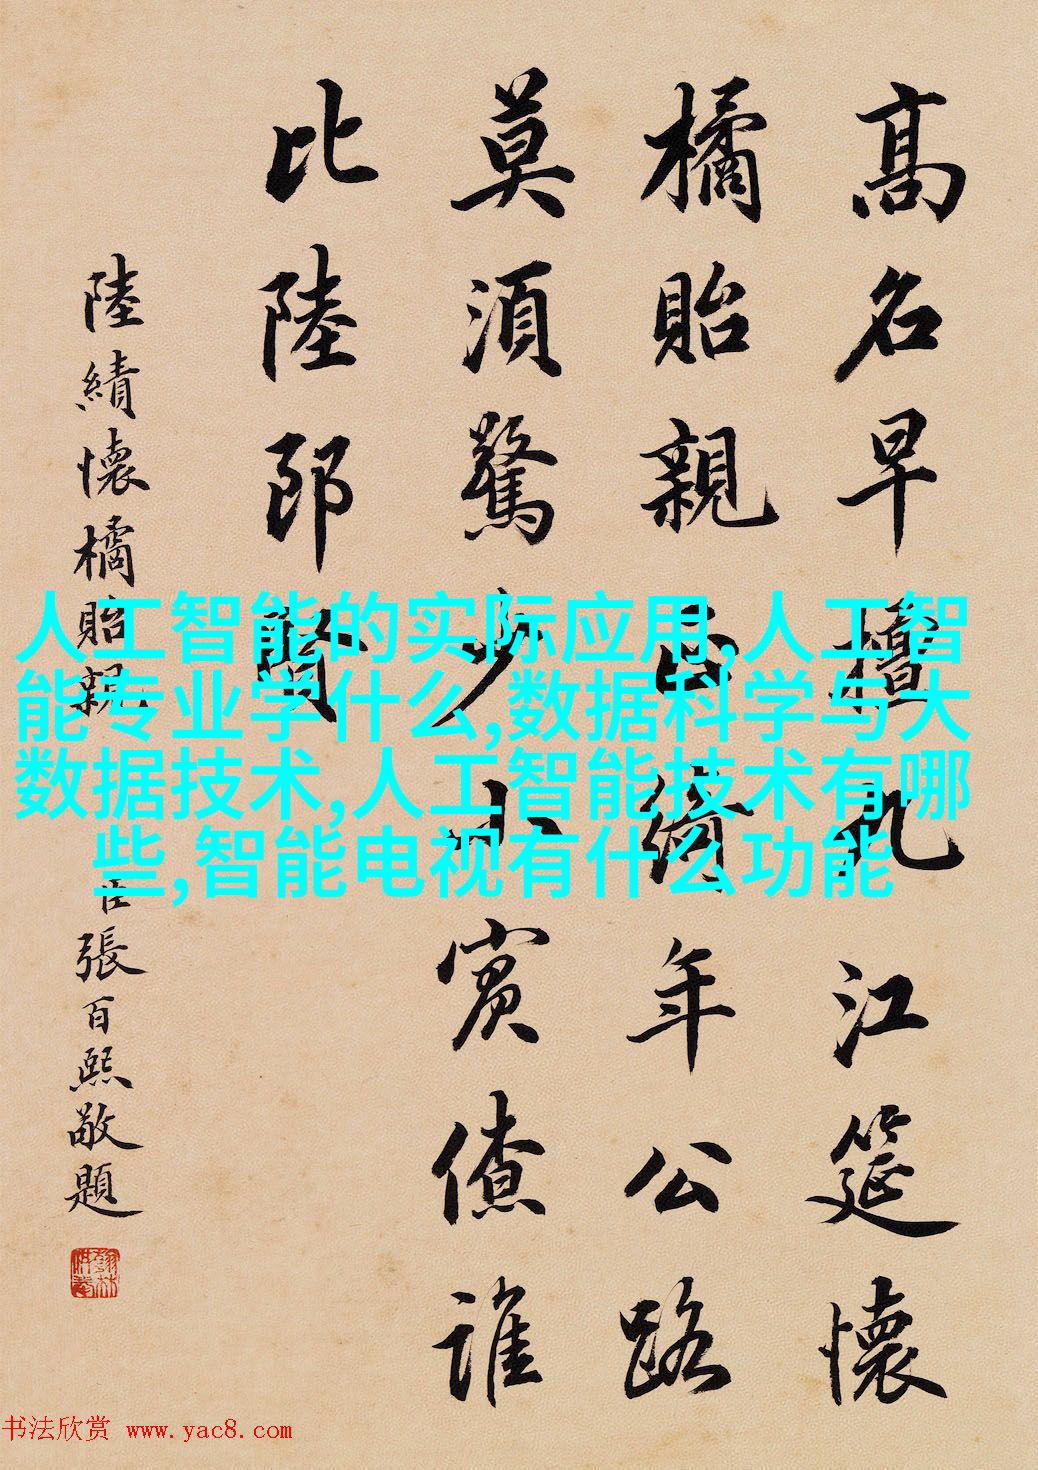 髙名早擅九江筵懷
橘貽親正綺年公路
莫須驚少小賓僚誰
比陸郎賢
陸績懷橘貽親
臣張百熙敬題
人工智能的实际应用,人工智
能专业学什么,数据科学与大
数据技术,人工智能技术有哪
些,智能电视有什么功能
书法欣赏 www.yac8.com